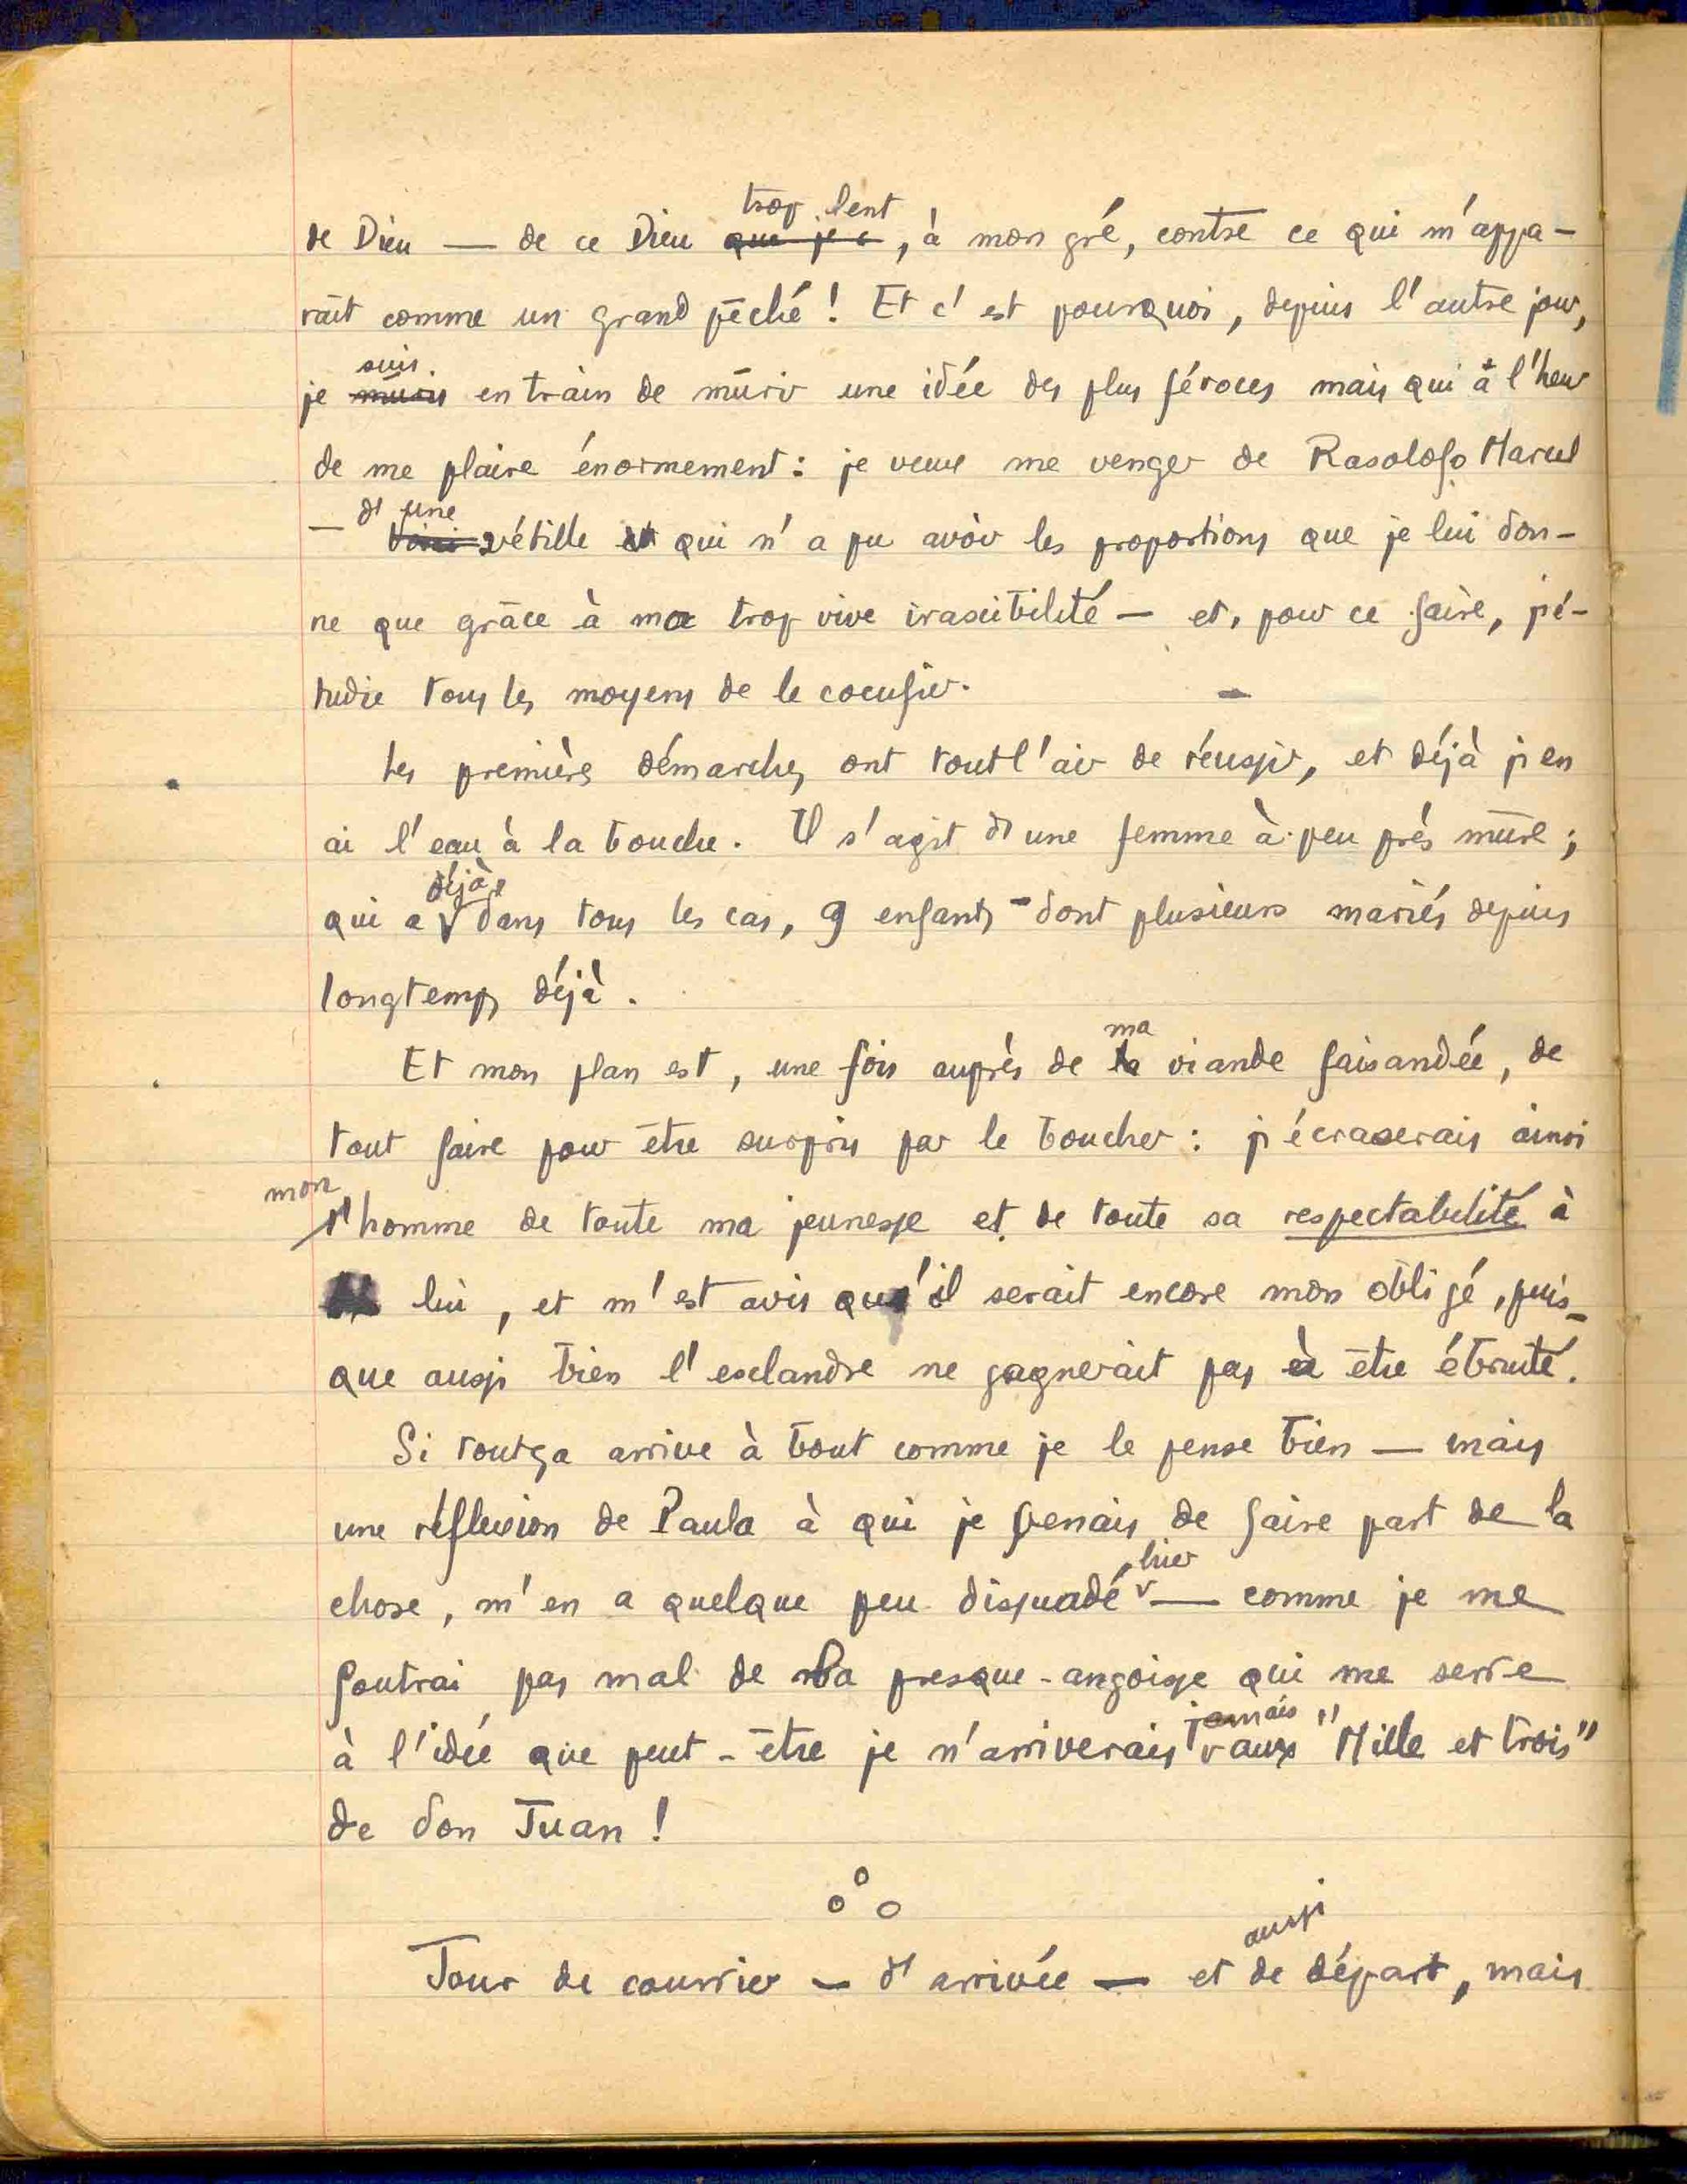 de Dieu — de ce Dieu trop lent, à mon gré, contre ce qui m'appa-
raît comme un grand péché ! Et c'est pourquoi, depuis l'autre jour,
je suis en train de mûrir une idée des plus féroces mais qui a l'heur
de me plaire énormement : je veux me venger de Rasolofo Marcel
— d'une vétille qui n'a pu avoir les proportions que je lui don-
ne que grâce à ma trop vive irascibilité — et, pour ce faire, j'é-
tudie tous les moyens de le cocufier.
Les premières démarches ont tout l'air de réussir, et déjà j'en
ai l'eau à la bouche. Il s'agit d'une femme à peu près mûre ;
qui a déjà, dans tous les cas, 9 enfants - dont plusieurs mariés depuis
longtemps déjà.
Et mon plan est, une fois auprès de ma viande faisandée, de
tout faire pour être surpris par le boucher : j'écraserais ainsi
mon homme de toute ma jeunesse et de toute sa respectabilité à
lui, et m'est avis qu'il serait encore mon obligé, puis-
que aussi bien l'esclandre ne gagnerait pas à être ébruité.
Si tout ça arrive à bout comme je le pense bien — mais
une réflexion de Paula à qui je venais de faire part de la
chose, m'en a quelque peu dissuadé, hier — comme je me
foutrai pas mal de la presque-angoisse qui me serre
à l'idée que peut-être je n'arriverais jamais aux "Mille et trois"
de don Juan !
o o o
Jour de courrier — d'arrivée — et aussi de départ, mais